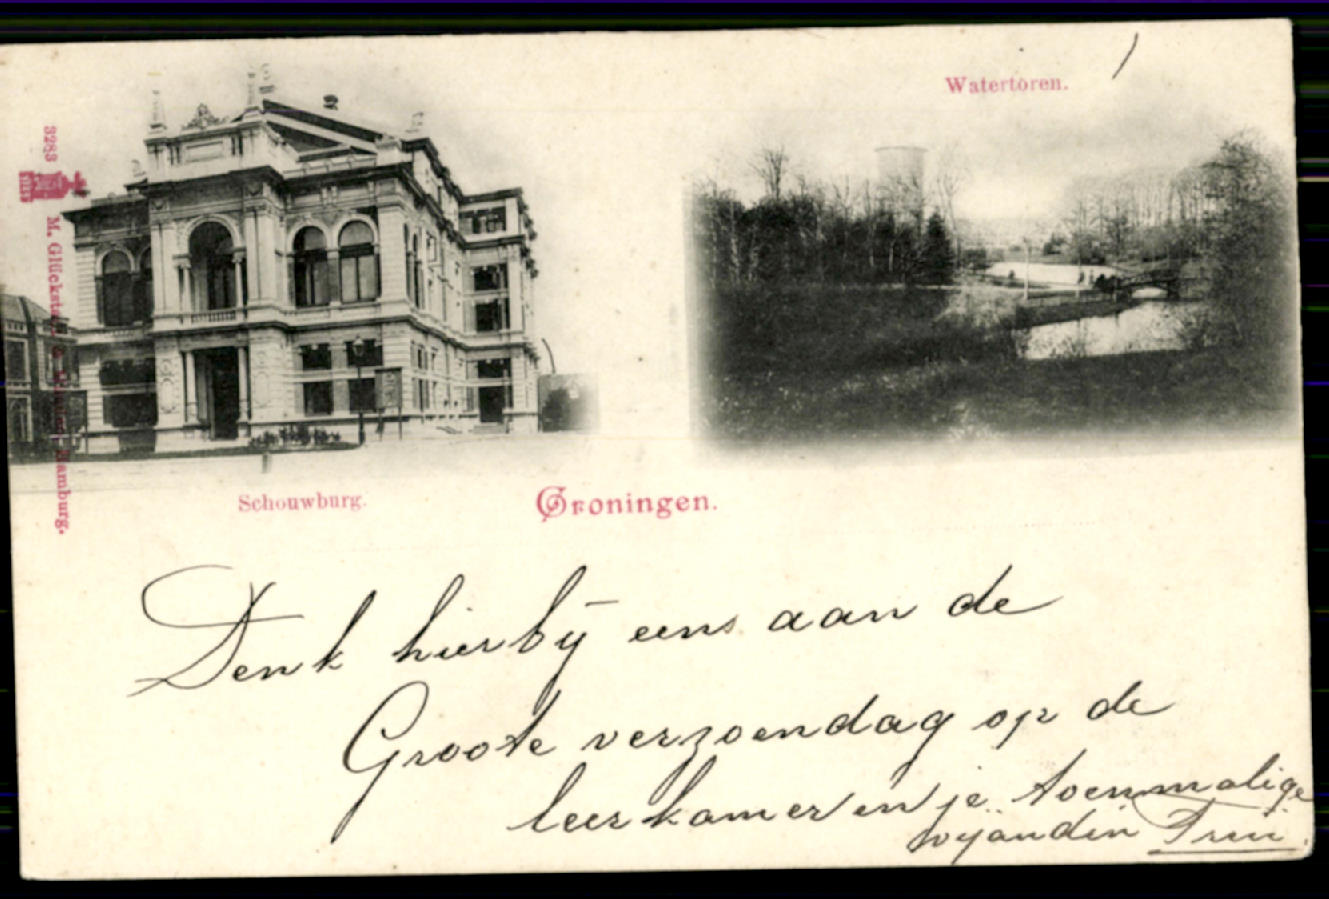 Watertoren.
3283
M. Glückstadt & Münden, Hamburg.
Schouwburg.
Groningen.
Denk hierbij eens aan de
Groote verzoendag op de
leerkamer en je toenmalige
vyandin Trui.